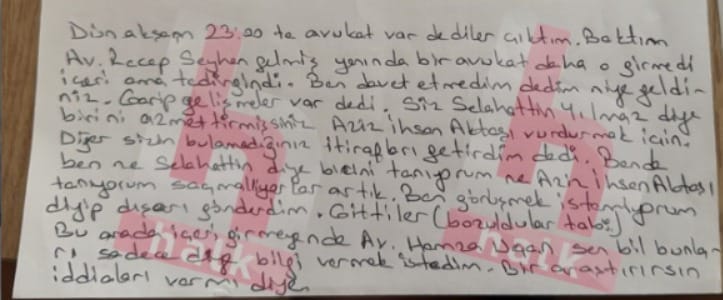 Dün akşam 23:00 te avukat var dediler çıktım. Baktım
Av. Recep Seyhan gelmiş yanında bir avukat daha o girmedi
içeri ama tedirgindi. Ben davet etmedim dedim niye geldi-
niz. Garip gelişmeler var dedi. Siz Selahattin Yılmaz diye
birini azmettirmişsiniz Aziz ihsan Aktaşı vurdurmak için.
Diğer sizin bulamadığınız itirafları getirdim dedi. Bende
ben ne Selahattin diye birini tanıyorum ne Aziz ihsan Aktaşı
tanıyorum saçmalıyorlar artık. Ben görüşmek istemiyorum
diyip dışarı gönderdim. Gittiler (bozuldular tabi)
Bu arada içeri girmeyende Av. Hamza Uçan sen bil bunla-
rı sadece diye bilgi vermek istedim. Bir araştırırsın
iddiaları varmı diye
halk
halk